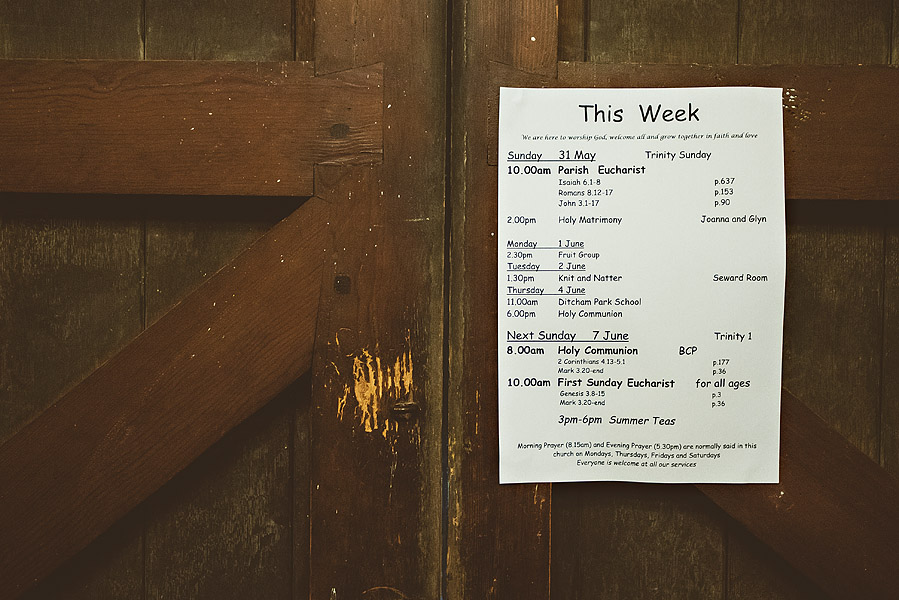 This Week
We are here to worship God, welcome all and grow together in faith and love
Sunday 31 May Trinity Sunday
10.00am Parish Eucharist
Isaiah 6.1-8 p.637
Romans 8.12-17 p.153
John 3.1-17 p.90
2.00pm Holy Matrimony Joanna and Glyn
Monday 1 June
2.30pm Fruit Group
Tuesday 2 June
1.30pm Knit and Natter Seward Room
Thursday 4 June
11.00am Ditcham Park School
6.00pm Holy Communion
Next Sunday 7 June Trinity 1
8.00am Holy Communion BCP
2 Corinthians 4.13-5.1 p.177
Mark 3.20-end p.36
10.00am First Sunday Eucharist for all ages
Genesis 3.8-15 p.3
Mark 3.20-end p.36
3pm-6pm Summer Teas
Morning Prayer (8.15am) and Evening Prayer (5.30pm) are normally said in this
church on Mondays, Thursdays, Fridays and Saturdays
Everyone is welcome at all our services